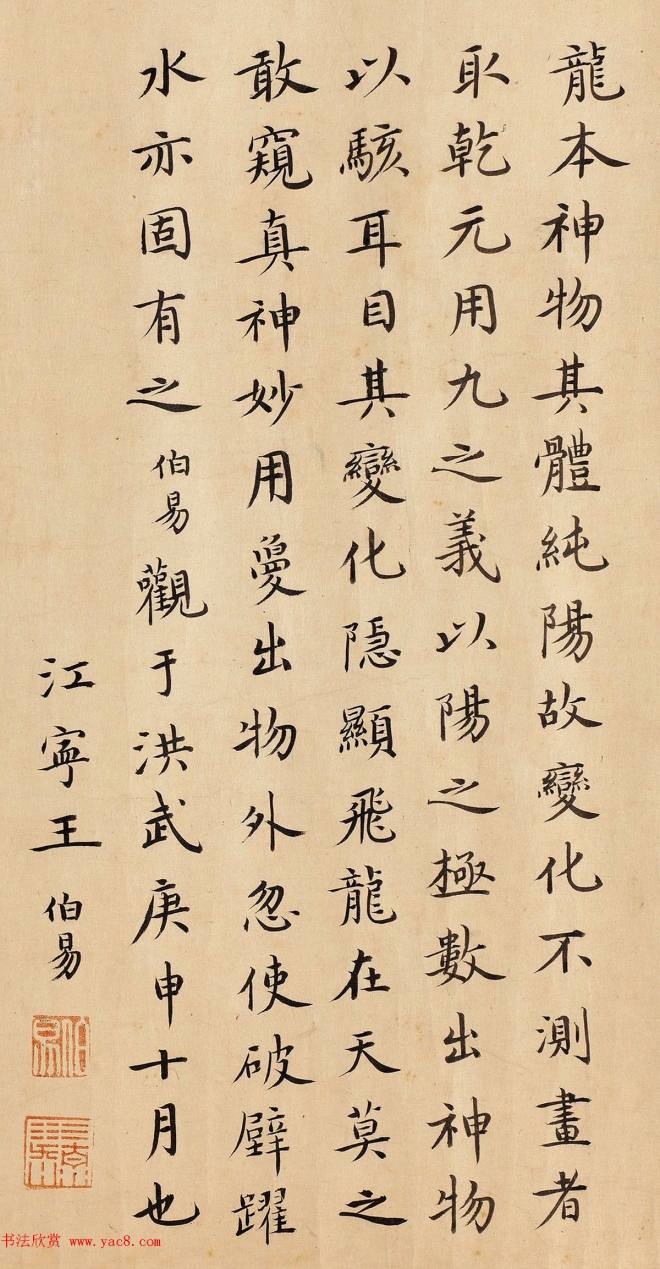 龍本神物其體純陽故變化不測畫者
取乾元用九之義以陽之極數出神物
以駭耳目其變化隱顯飛龍在天莫之
敢窺真神妙用夐出物外忽使破壁躍
水亦固有之伯易觀于洪武庚申十月也
江寧王伯易
书法欣赏 www.yac8.com